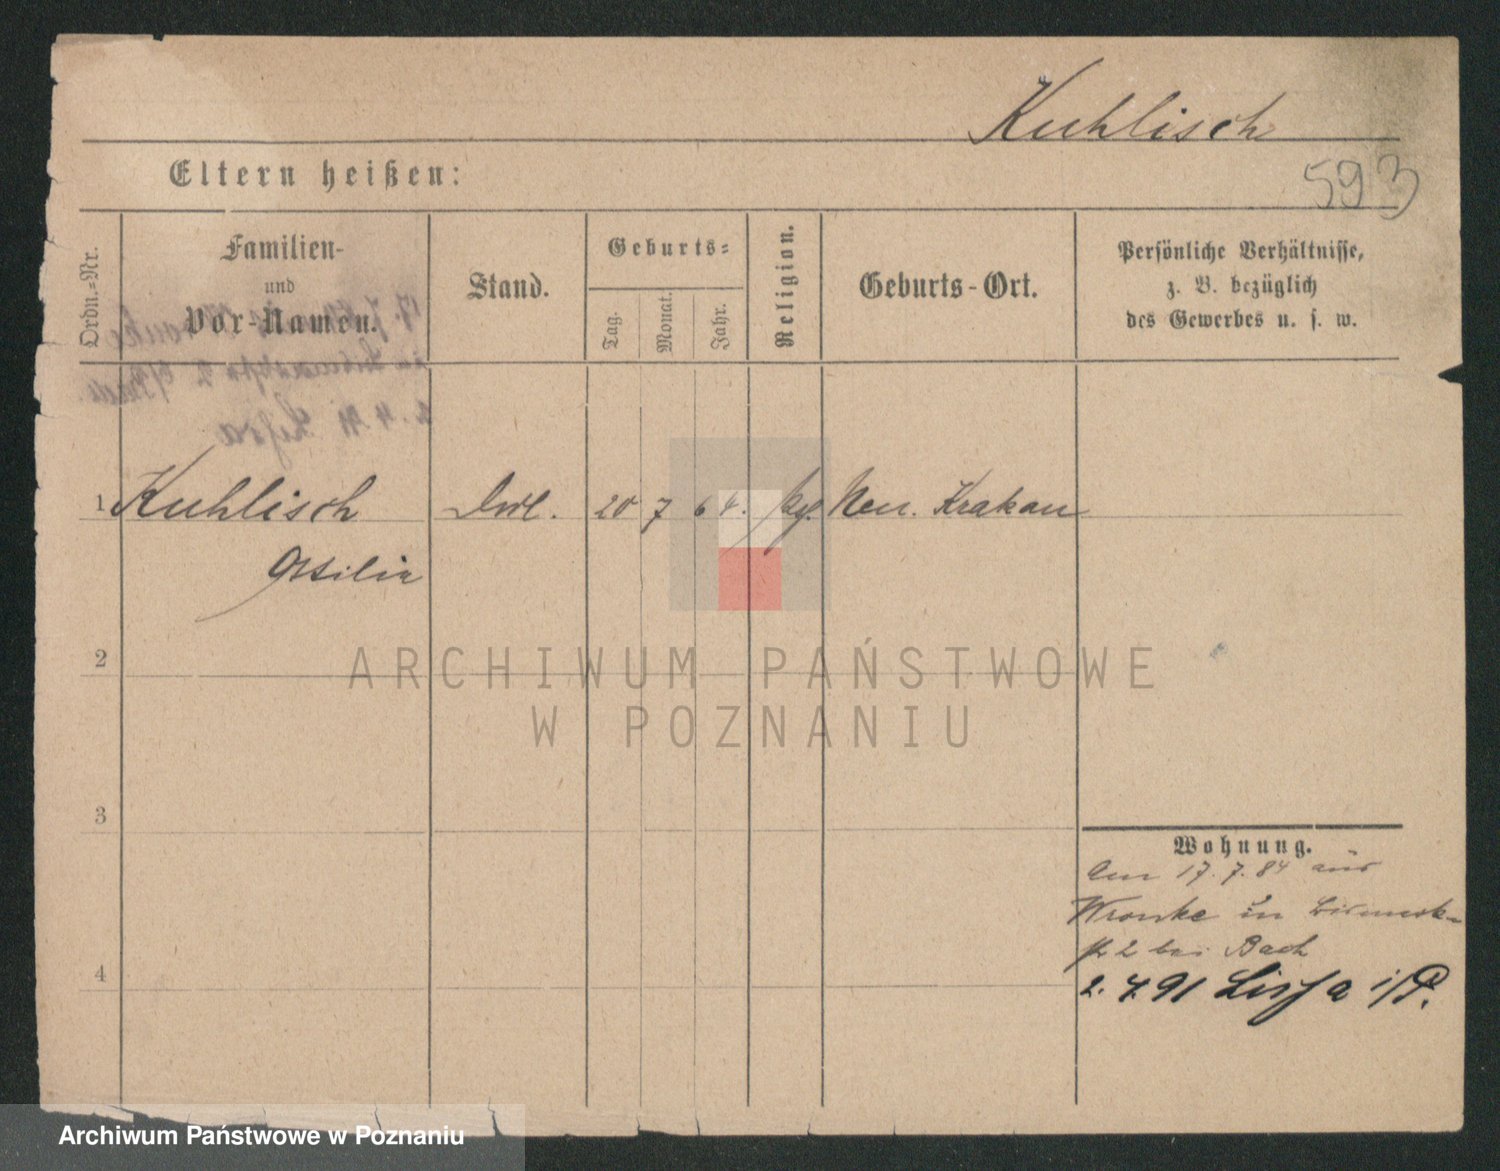 Kuhlisch
593
Eltern heißen:
Ordn.=Nr.
Familien-
und
Vor-Namen.
Stand.
Geburts=
Tag.
Monat.
Jahr.
Religion.
Geburts-Ort.
Persönliche Verhältnisse,
z. B. bezüglich
des Gewerbes u. s. w.
1 Kuhlisch 20 7 64. Neu. Krakau
Ottilie
2
ARCHIWUM PAŃSTWOWE
W POZNANIU
3
Wohnung.
Am 17.7.84 aus
Wronke in
2 bei Bach
4
2.4.91 Lissa i/P.
Archiwum Państwowe w Poznaniu